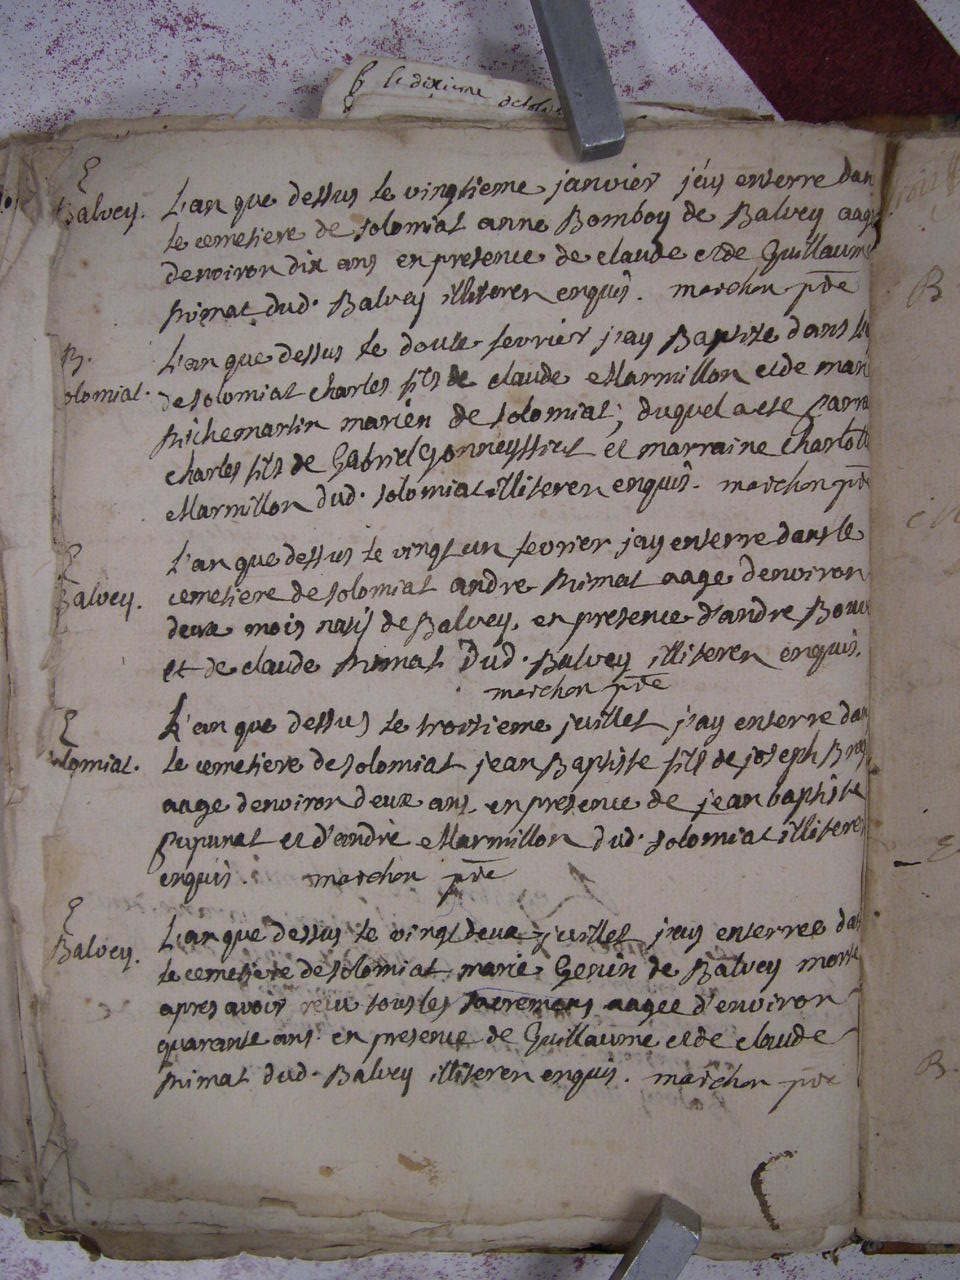 le dixieme
E
Balvey.
L'an que dessus le vingtieme janvier j'ay enterre dan
le cemetiere de solomiat anne Bomboy de Balvey aage
denviron dix ans en presence de claude et de Guillaume
primat dud. Balvey illiteren enquis. marchon ptre
B.
olomiat.
L'an que dessus le douze fevrier j'ay Baptize dans
de solomiat charles fils de claude Marmillon et de mari
marien de solomiat, duquel a este parra
charles fils de Gabriel et marraine charlott
Marmillon dud. solomiat illiteren enquis. marchon ptre
E
Balvey.
L'an que dessus le vingt un fevrier jay enterre dans le
cemetiere de solomiat andre primat aage denviron
deux mois natif de Balvey, en presence d'andre Bou
et de claude primat dud. Balvey illiteren enquis.
marchon ptre
E
olomiat.
L'an que dessus le troisieme juillet j'ay enterre dan
le cemetiere de solomiat jean Baptiste fils de joseph
aage denviron deux ans en presence de jean baptiste
pupunat et d'andre Marmillon dud. solomiat illiteren
enquis. marchon ptre
E
Balvey.
L'an que dessus le vingt deux juillet j'ay enterree da
le cemetiere de solomiat marie Genin de Balvey morte
apres avoir reçu tous les sacremens aagee d'environ
quarante ans en presence de Guillaume et de claude
primat dud. Balvey illiteren enquis. marchon ptre
B
B.